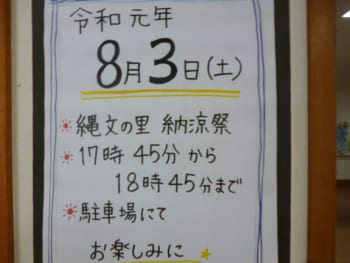 令和元年
8月3日(土)
縄文の里 納涼祭
17時45分から
18時45分まで
駐車場にて
お楽しみに